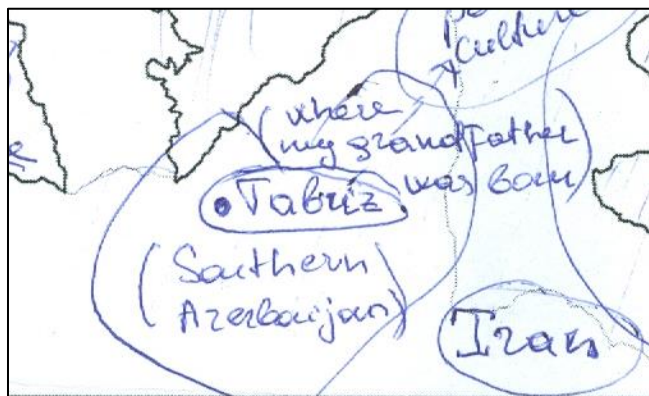 culture
(where
my grandfather
was born)
Tabriz
(Southern
Azerbaijan)
Iran